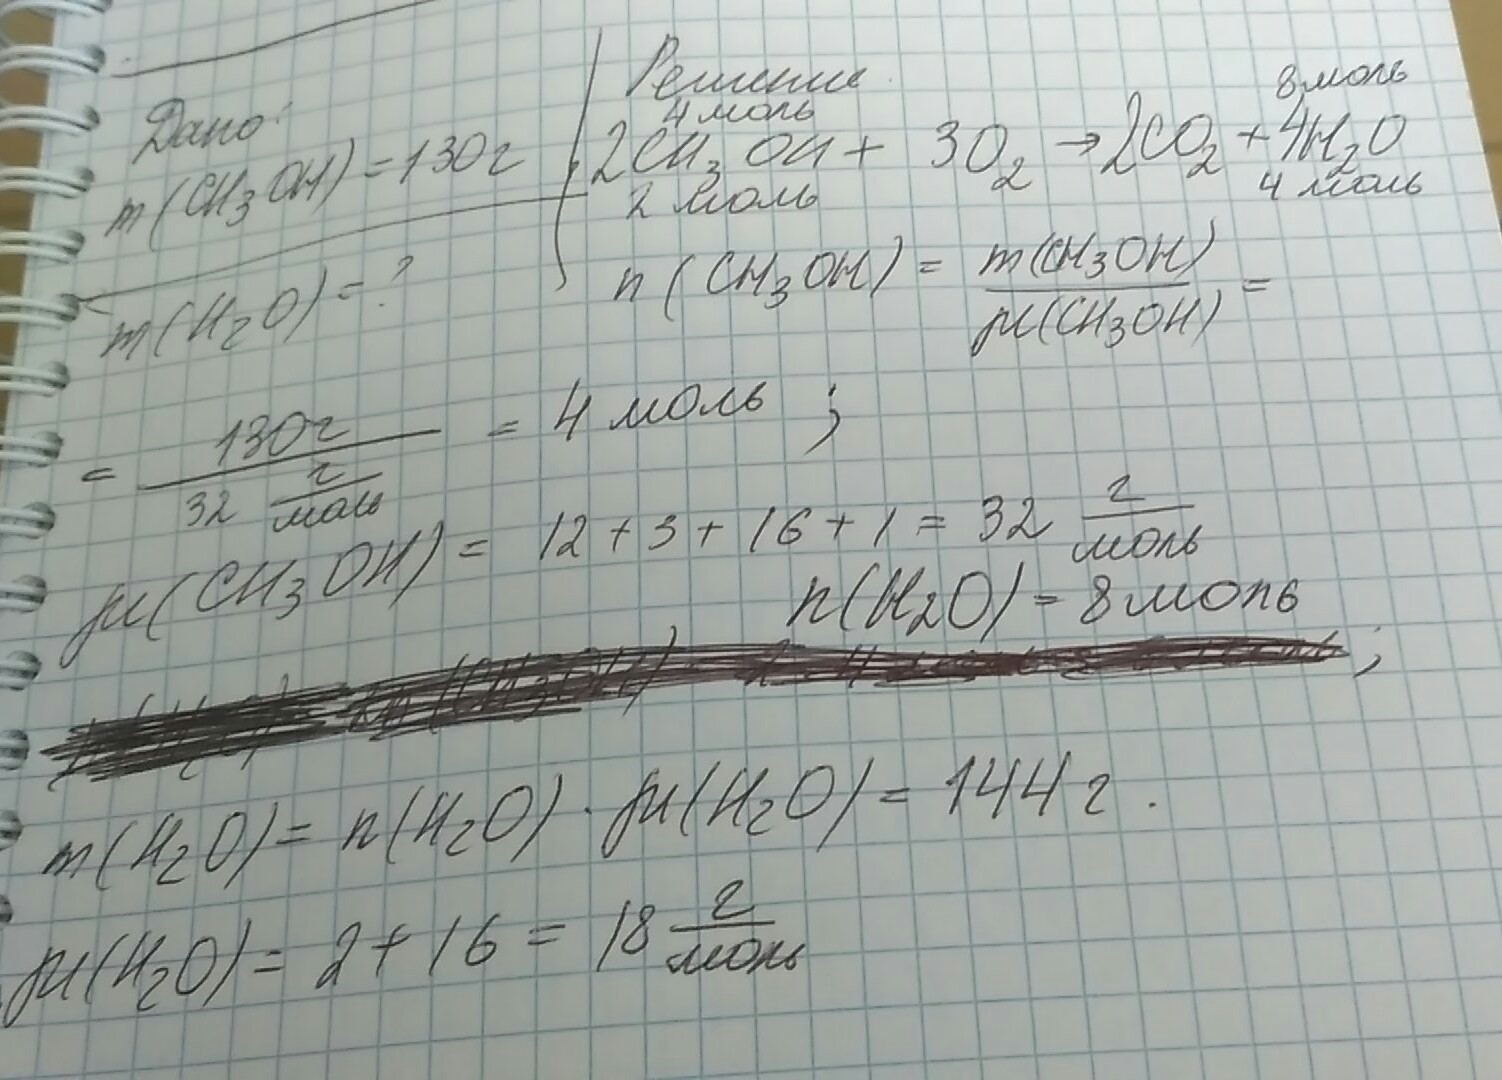 Дано:
m(CH₃OH) = 130г
m(H₂O) = ?
Решение.
4 моль 8 моль
2CH₃OH + 3O₂ → 2CO₂ + 4H₂O
2 моль 4 моль
n(CH₃OH) = m(CH₃OH) / M(CH₃OH) =
= 130г / 32 г/моль = 4 моль ;
M(CH₃OH) = 12 + 3 + 16 + 1 = 32 г/моль
n(H₂O) = 8 моль ;
m(H₂O) = n(H₂O) · M(H₂O) = 144 г .
M(H₂O) = 2 + 16 = 18 г/моль